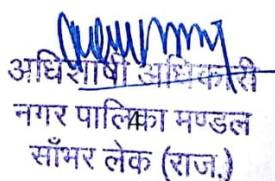 अधिशाषी अधिकारी
नगर पालिका मण्डल
4
साँभर लेक (राज.)